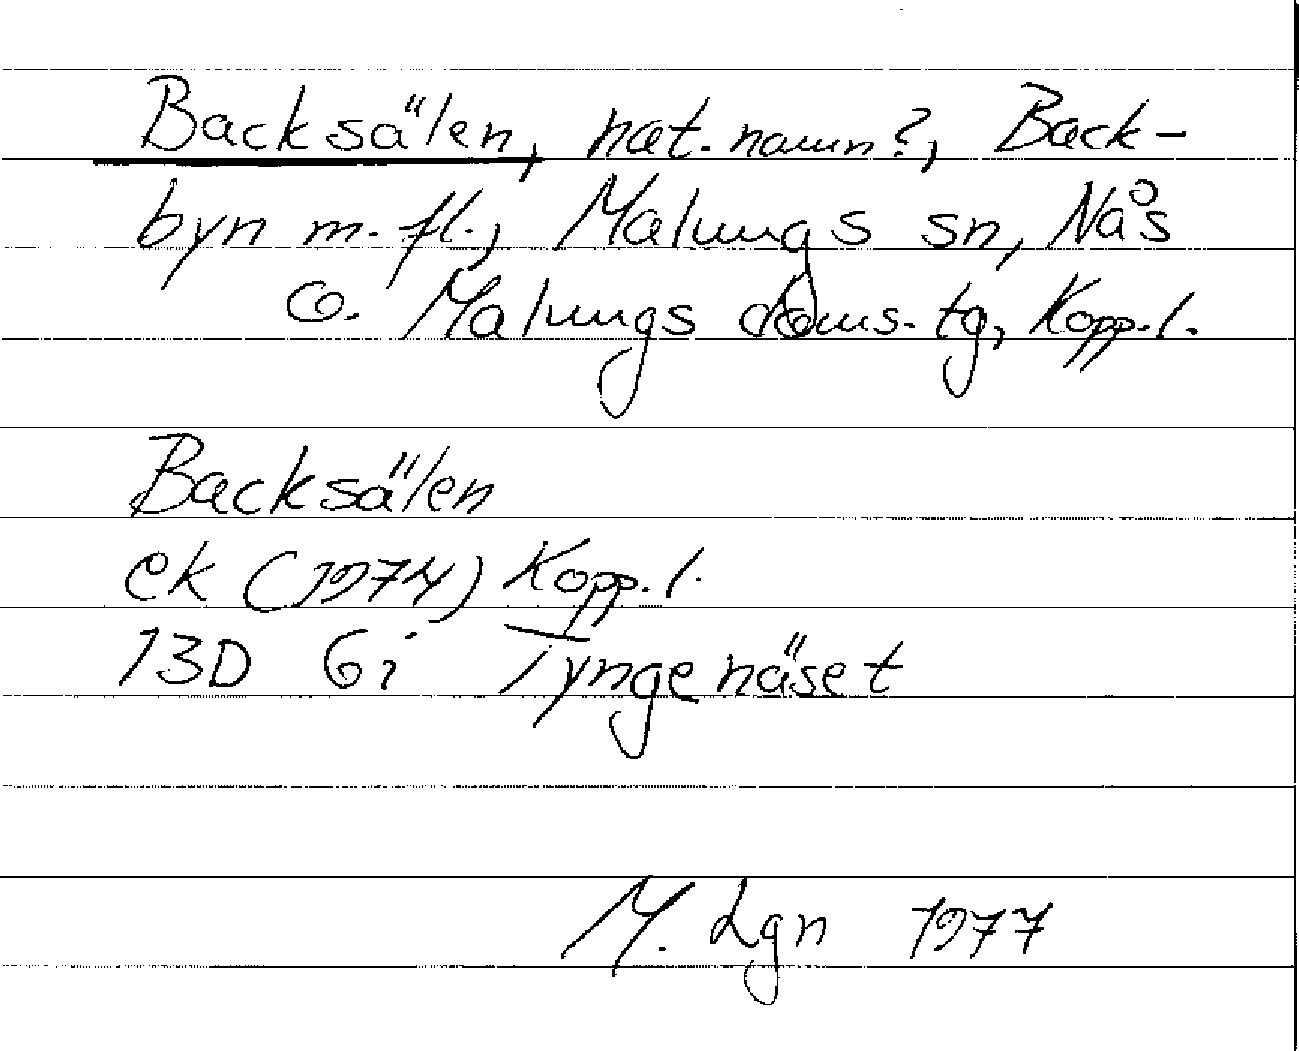 Backsälen, nat. namn?, Back-
byn m. fl., Malungs sn, Nås
o. Malungs doms. tg, Kopp. l.
Backsälen
ek (1974) Kopp. l.
13D 6i Tyngenäset
M. Lgn 1977